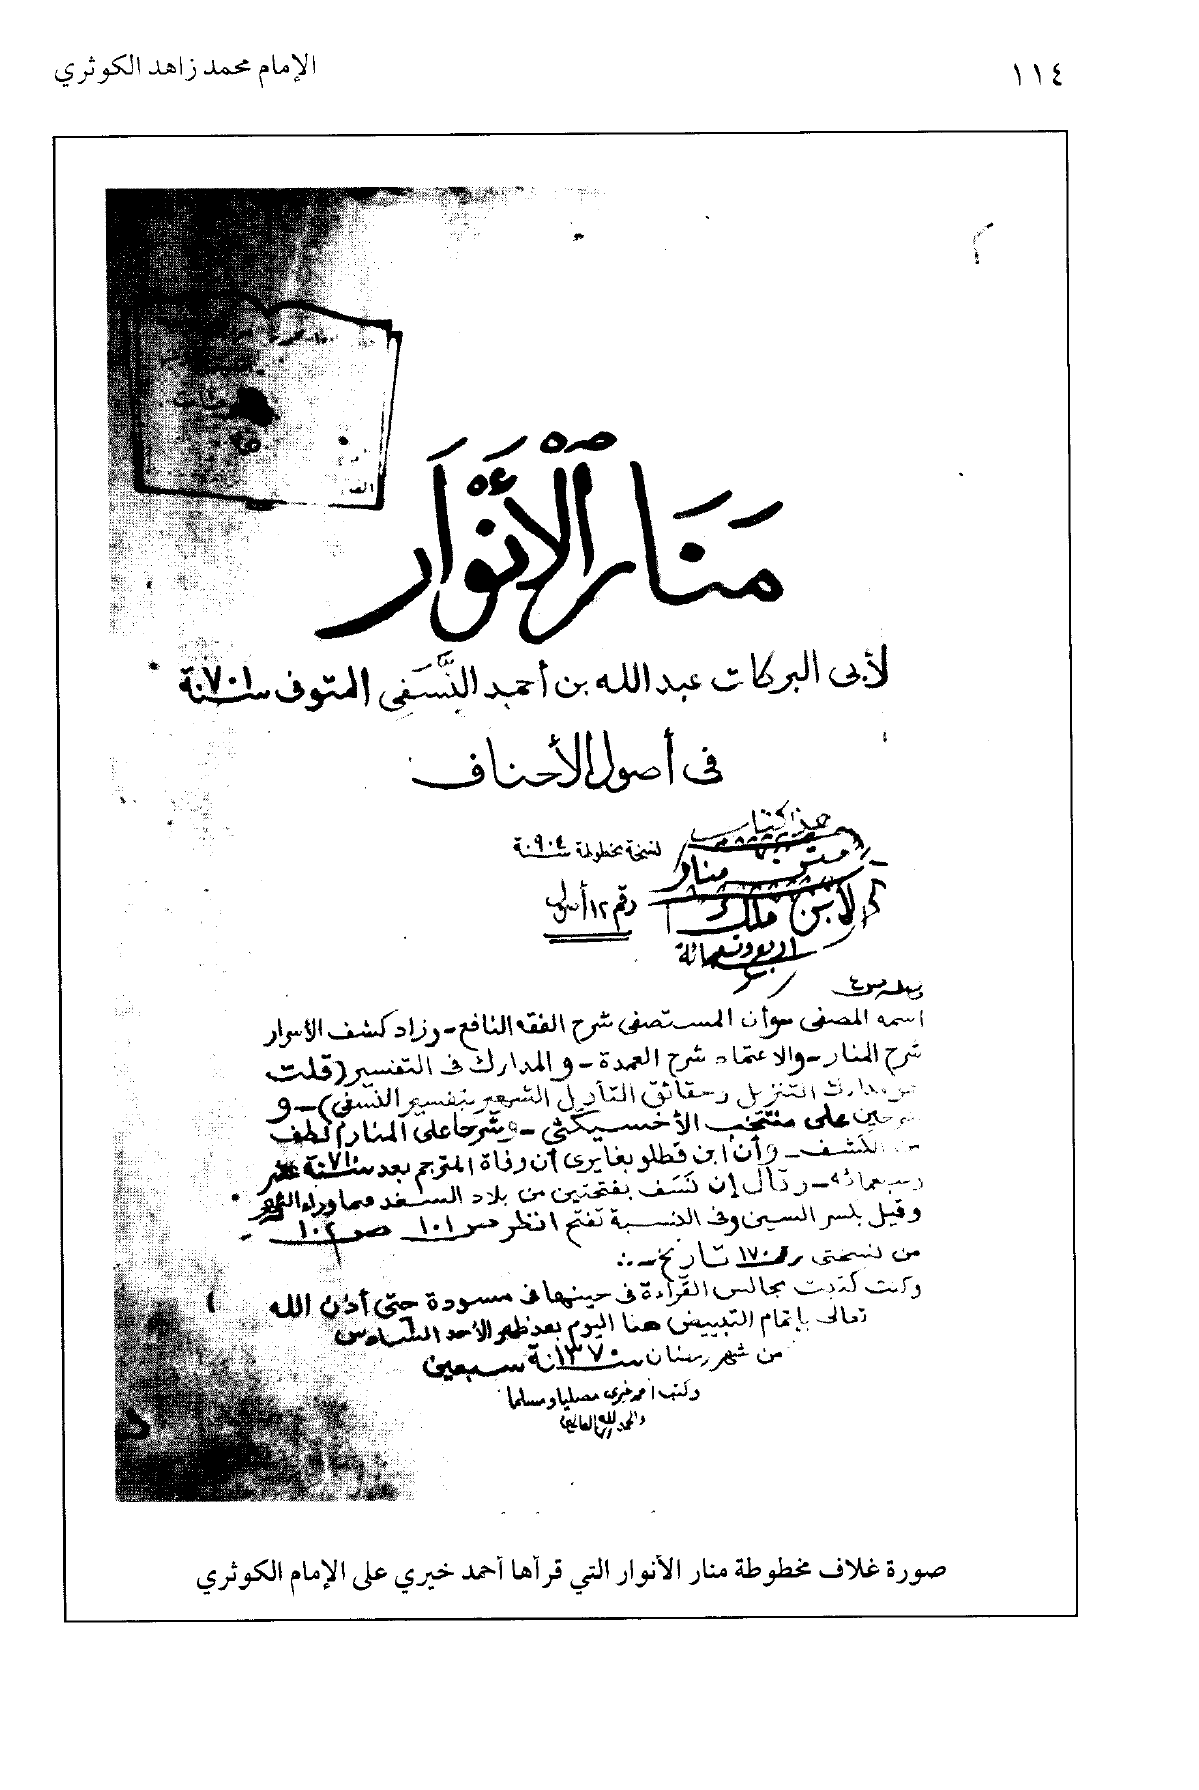 ١١٤
الإمام محمد زاهد الكوثري
مَنَارُ الْأَنْوَارِ
لأبى البركات عبد الله بن أحمد النَّسَفِى المتوفى سنة ٧٠١
فى أصول الأحناف
هذا كتاب
متن منار
لابن ملك
نسخة مخطوطة سنة ٩٠٤
رقم ١٢ أصول
اسمه المصفى وأن المستصفى شرح الفقه النافع - وزاد كشف الأسرار
شرح المنار - والاعتماد شرح العمدة - والمدارك فى التفسير (قلت
مدارك التنزيل وحقائق التأويل الشهير بتفسير النسفى) - و
على منتخب الأخسيكثى - وشرحا على المنار ألطف
الكشف - وأن ابن قطلوبغا يرى أن وفاة المترجم بعد سنة ٧١٠ عشر
وسبعمائة - وقال إن نسف بفتحتين من بلاد السغد فيما وراء النهر
وقيل بكسر السين وفى النسبة تفتح انظر ص ١٠١ ص ١٠٢
من نسختى رقم ١٧٠ تاريخ - .:
وكنت كتبت مجالس القراءة فى حينها فى مسودة حتى أذن الله
تعالى بإتمام التبييض هنا اليوم بعد ظهر الأحد السادس
من شهر رمضان سنة ١٣٧٠ سبعين
وكتب أحمد خيرى مصليا ومسلما
والحمد لله رب العالمين
صورة غلاف مخطوطة منار الأنوار التي قرأها أحمد خيري على الإمام الكوثري